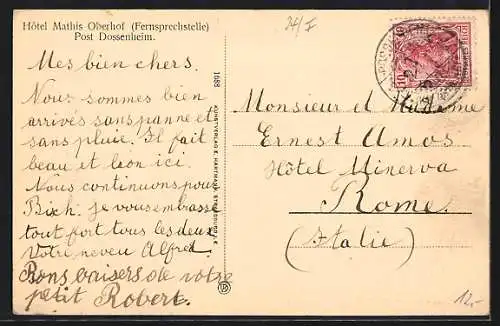 Hôtel Mathis Oberhof (Fernsprechstelle)
Post Dossenheim.
Mes bien chers.
Nous sommes bien
arrivés sans panne et
sans pluie. Il fait
beau et bon ici.
Nous continuons pour
Bich. je vous embrasse
tout fort tous les deux
Votre neveu Alfred.
Bons baisers de votre
petit Robert.
1688
KUNSTVERLAG E. HARTMANN, STRASSBURG I. E.
24/I
Monsieur et Madame
Ernest Amos
Hôtel Minerva
Rome.
(Italie)
10
12.-